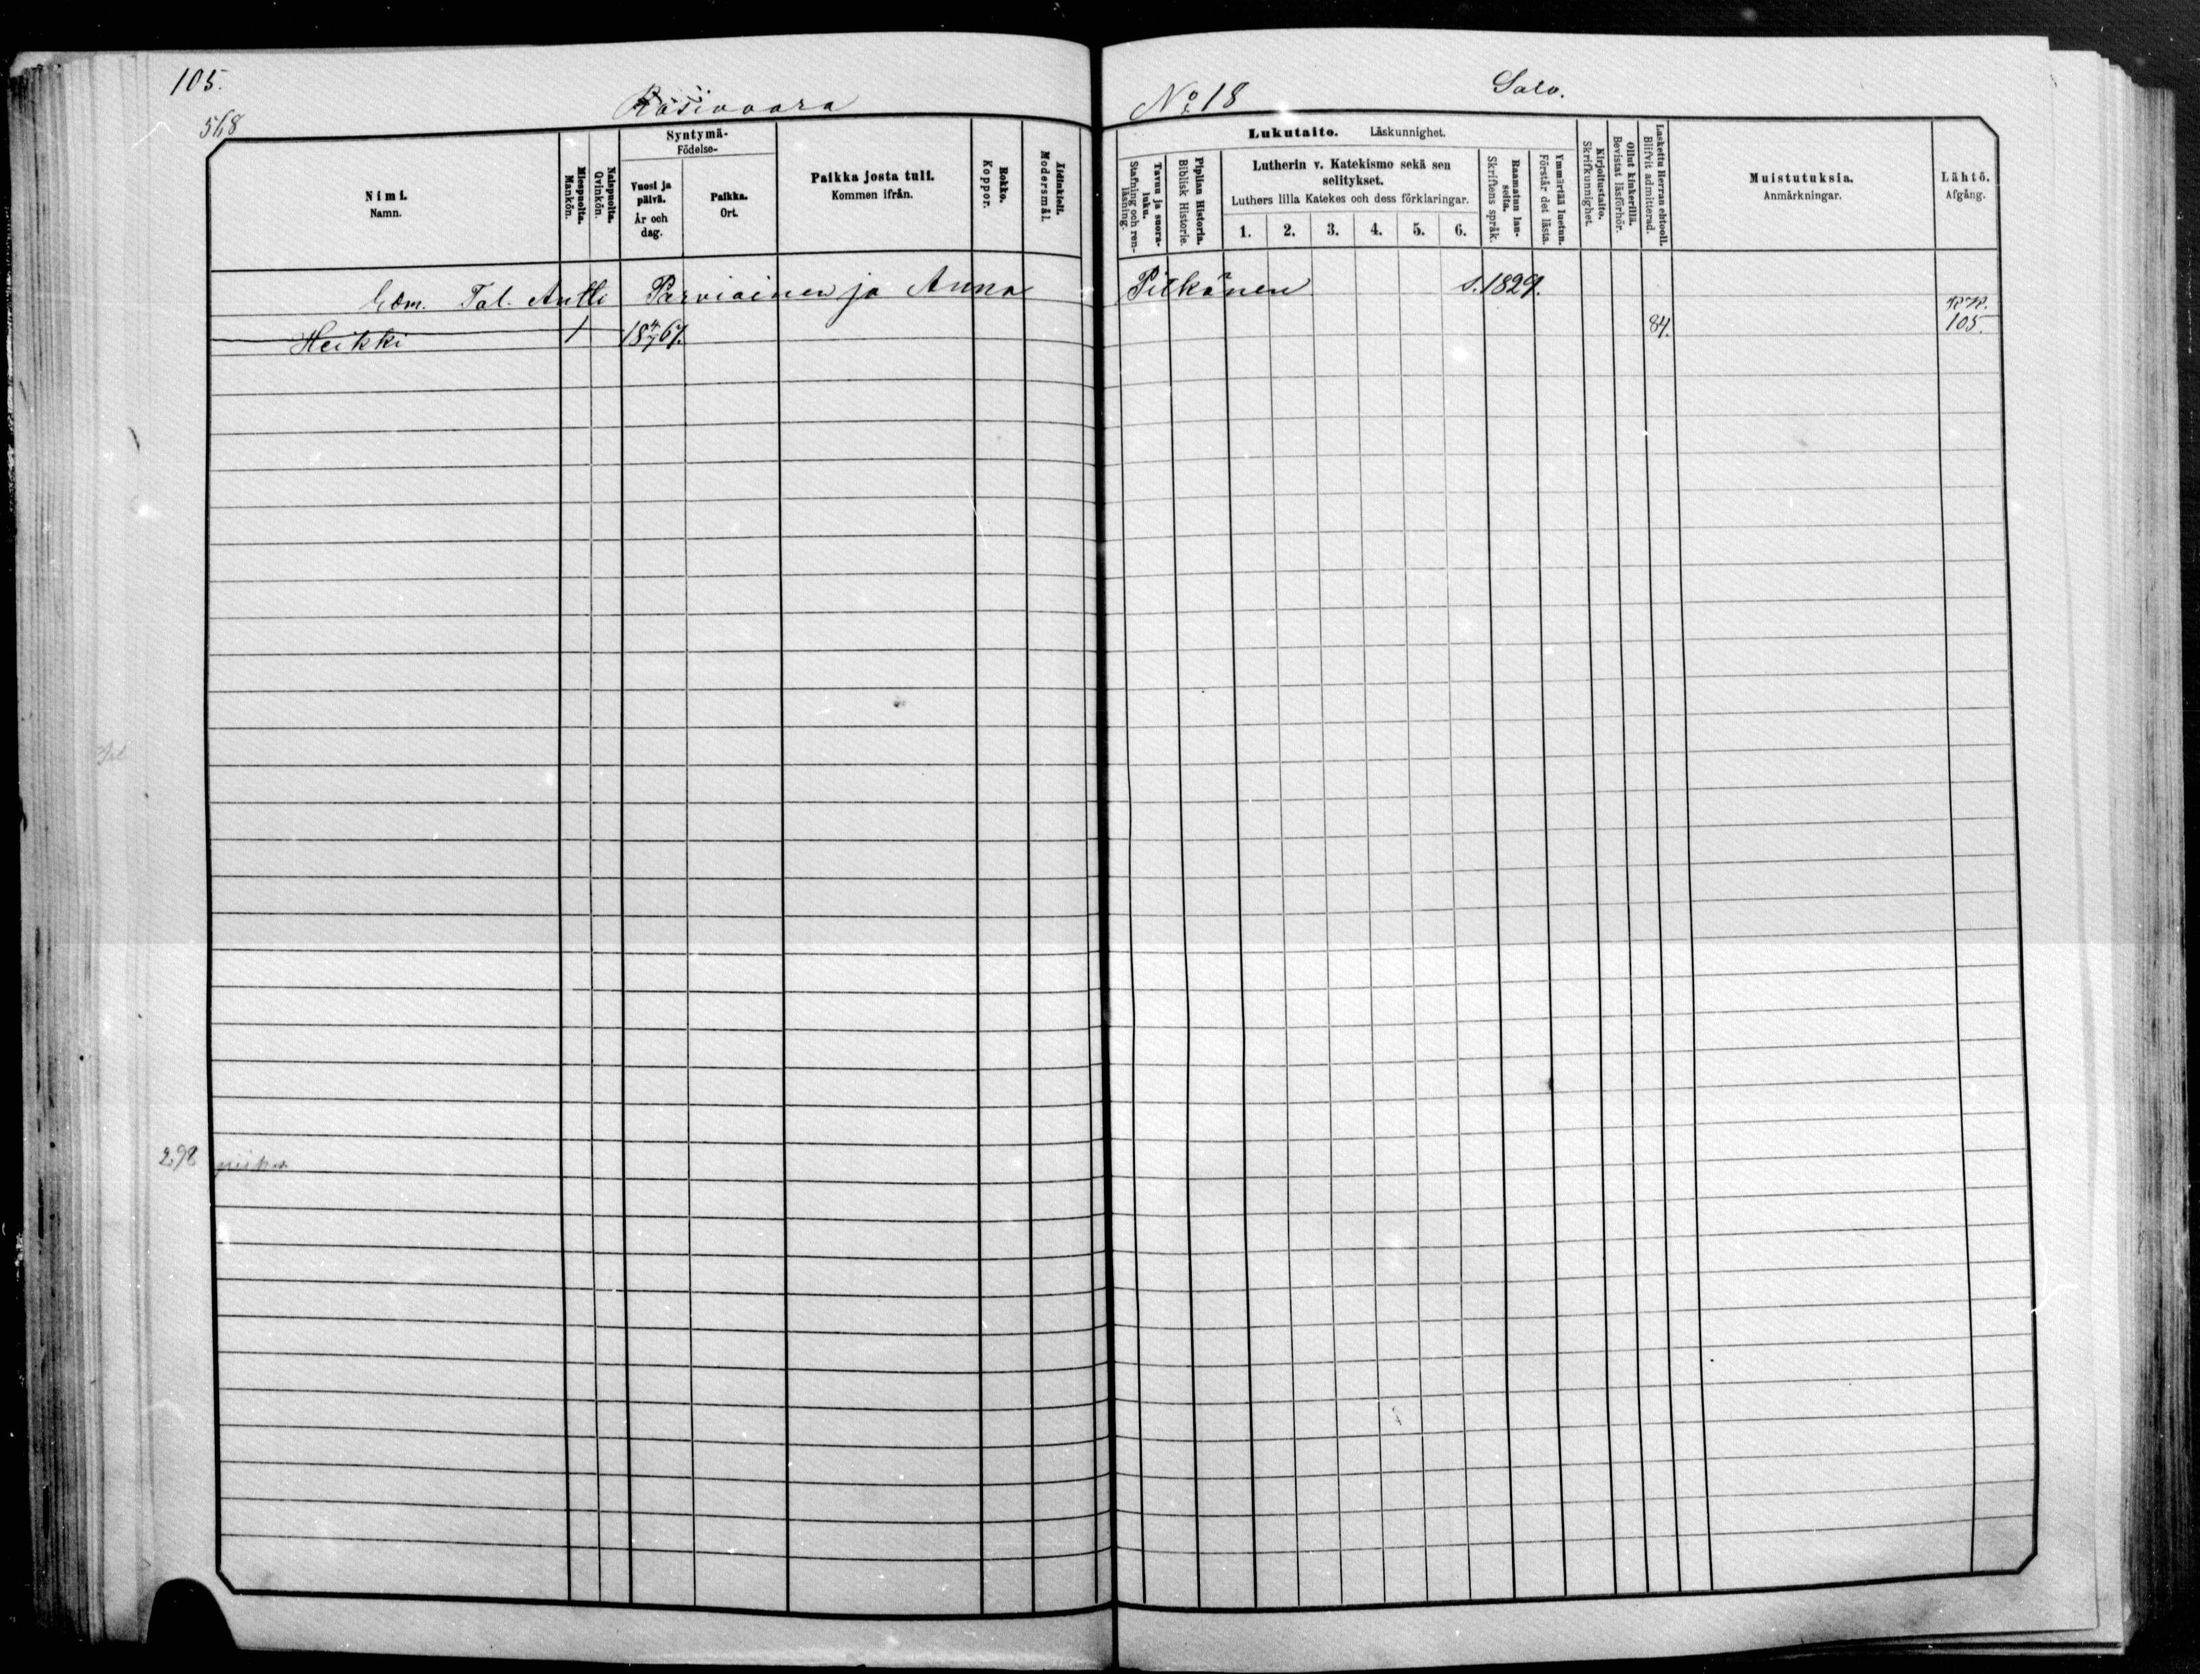 105.
568
Räsivaara
No 18
Salo.
Nimi.
Namn.
Miespuolta.
Mankön.
Naispuolta.
Qvinkön.
Syntymä-
Födelse-
Vuosi ja
päivä.
År och
dag.
Paikka.
Ort.
Paikka josta tuli.
Kommen ifrån.
Rokko.
Koppor.
Äidinkieli.
Modersmål.
Lukutaito. Läskunnighet.
Tavuu ja suora-
luku.
Stafning och ren-
läsning.
Piplian Historia.
Biblisk Historie.
Lutherin v. Katekismo sekä sen
selitykset.
Luthers lilla Katekes och dess förklaringar.
1. 2. 3. 4. 5. 6.
Raamatun lau-
seita.
Skriftens språk.
Ymmärtää luetun.
Förstår det lästa.
Kirjoitustaito.
Skrifkunnighet.
Ollut kinkerillä.
Bevistat läsförhör.
Laskettu Herran ehtooll.
Blifvit admitterad.
Muistutuksia.
Anmärkningar.
Lähtö.
Afgång.
Tal. Antti Parviainen ja Anna Pitkänen s. 1829.
Heikki 1 18 4/7 67. 84. RK. 105.
298